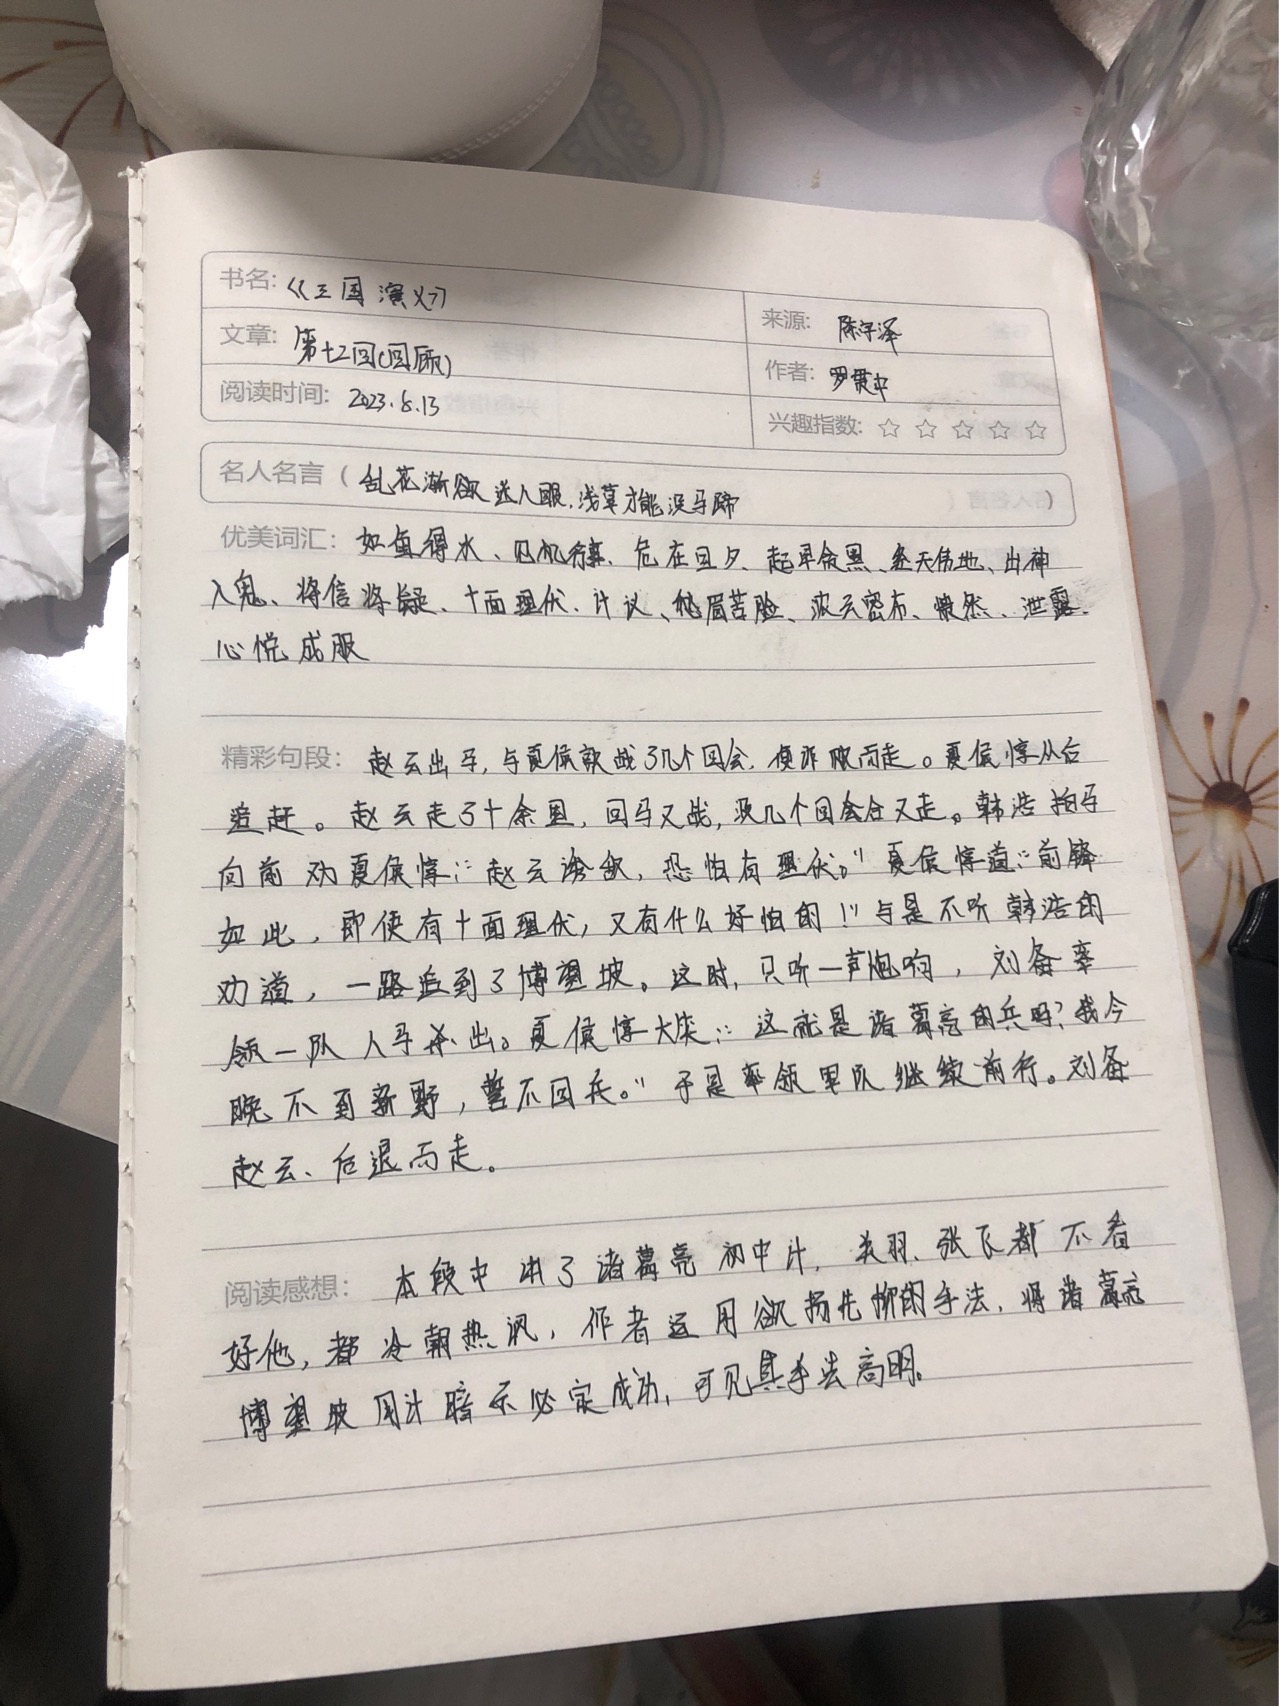 书名: 《三国演义》
来源: 陈宇泽
文章: 第十二回(回顾)
作者: 罗贯中
阅读时间: 2023.8.13
兴趣指数: ☆ ☆ ☆ ☆ ☆
名人名言 ( 乱花渐欲迷人眼,浅草才能没马蹄 )
优美词汇: 如鱼得水、见机行事、危在旦夕、起早贪黑、经天伟地、出神
入鬼、将信将疑、十面埋伏、计议、愁眉苦脸、浓云密布、愤然、泄露、
心悦成服
精彩句段: 赵云出马,与夏侯敦战了几个回会,便诈败而走。夏侯惇从后
追赶。赵云走了十余里,回马又战,没几个回会合又走。韩浩拍马
向前劝夏侯惇:“赵云诱敌,恐怕有埋伏。”夏侯惇道:“前锋
如此,即使有十面埋伏,又有什么好怕的!”与是不听韩浩的
劝道,一路追到了博望坡。这时,只听一声炮响,刘备率
领一队人马杀出。夏侯惇大笑:“这就是诸葛亮的兵吗?我今
晚不到新野,誓不回兵。”于是率领军队继续前行。刘备
赵云、后退而走。
阅读感想: 本段中讲了诸葛亮初中计,关羽、张飞都不看
好他,都冷朝热讽,作者运用欲扬先抑的手法,将诸葛亮
博望坡用计暗示必定成功,可见其手法高明。